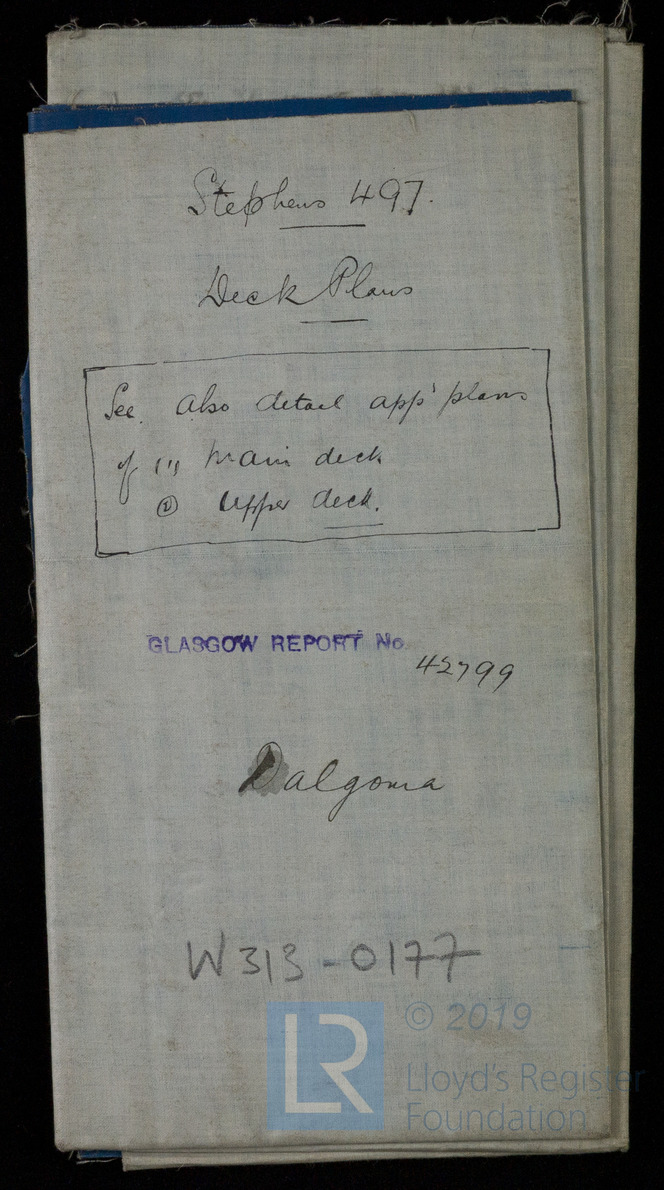 Stephens 497.
Deck Plans
See also detail app' plans
of (1) Main deck
(2) Upper deck.
GLASGOW REPORT No
42799
Dalgoma
W313-0177
LR
© 2019
Lloyd's Register
Foundation